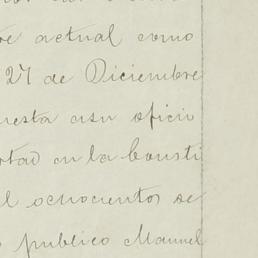 re actual como
27 de Diciembre
uesta a su oficio
rtad en la Consti
l ochocientos se
o publico Manuel